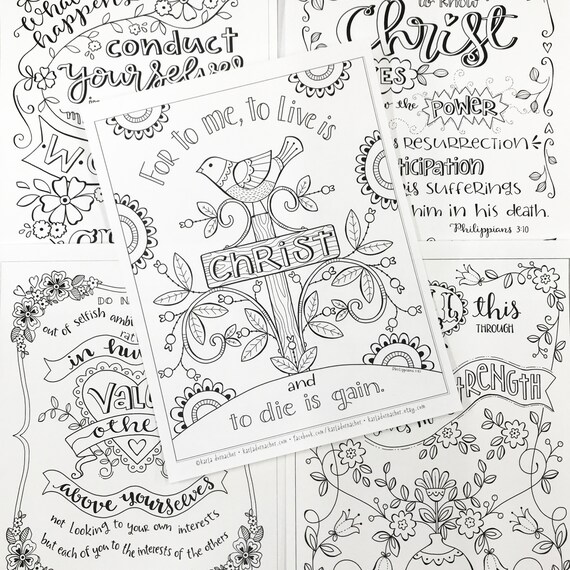 happens
conduct
yourselves
to know
Christ
to the POWER
RESURRECTION
his SUFFERINGS
him in his death.
Philippians 3:10
For to me, to live is
CHRIST
and
to die is gain.
©karla dornacher • karladornacher.com • facebook.com/karladornacher • karladornacher.etsy.com
DO N
out of selfish ambi
in hu
VALU
othe
above yourselves
not looking to your own interests
but each of you to the interests of the others
this
THROUGH
STRENGTH